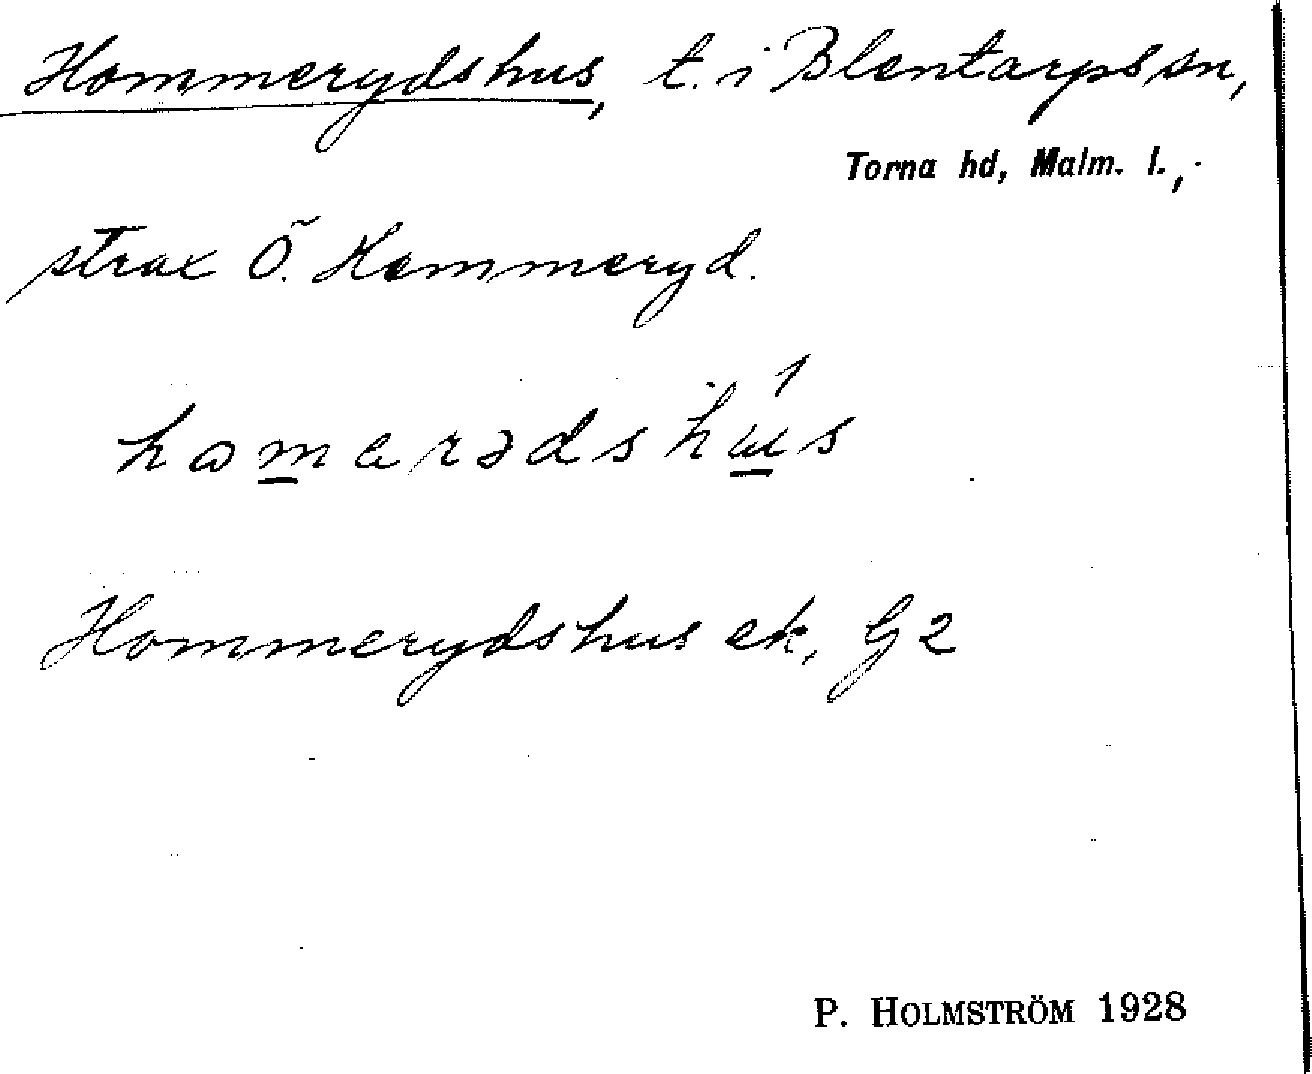 Hommerydshus, t. i Blentarps sn,
Torna hd, Malm. l.,
strax Ö. Hommeryd.
Hommerydshus ek, G2
P. HOLMSTRÖM 1928